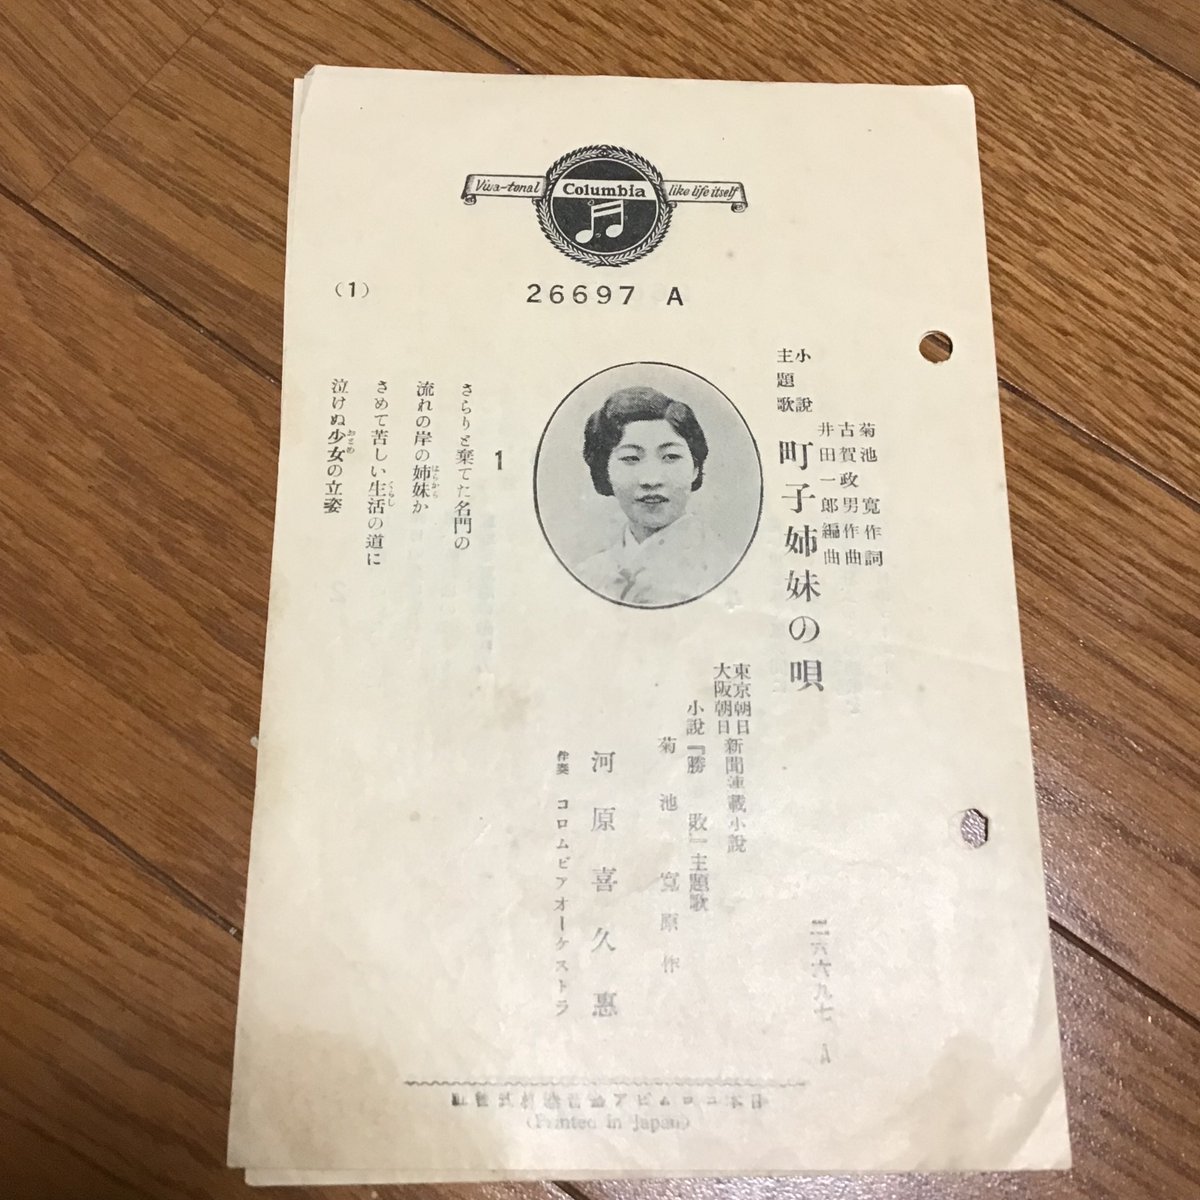 Viva-tonal Columbia like life itself
26697 A
(1)
小説
主題歌
町子姉妹の唄
菊池寛作詞
古賀政男作曲
井田一郎編曲
二六六九七 A
東京朝日
大阪朝日
新聞連載小説
小説『勝敗』主題歌
菊池寛原作
河原喜久恵
伴奏 コロムビアオーケストラ
1
さらりと棄てた名門の
流れの岸の姉妹か
はらから
さめて苦しい生活の道に
くらし
泣けぬ少女の立姿
おとめ
(Printed in Japan)